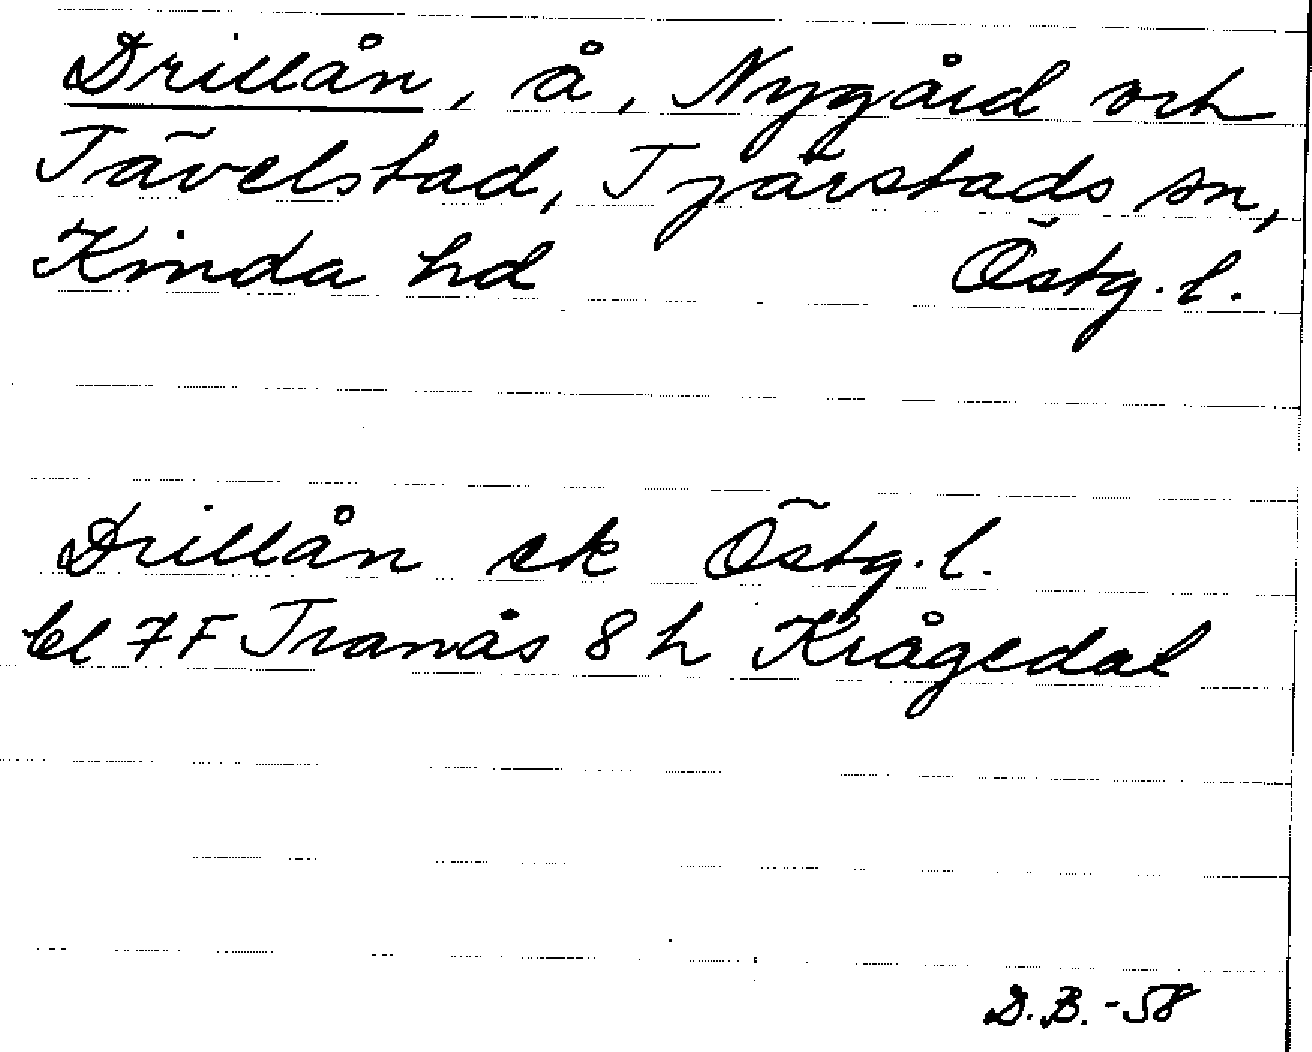 Drillån, å, Nygård och
Tävelstad, Tjärstads sn,
Kinda hd Östg. l.
Drillån ek Östg. l.
bl 7F Tranås 8 h Krågedal
D.B. -58